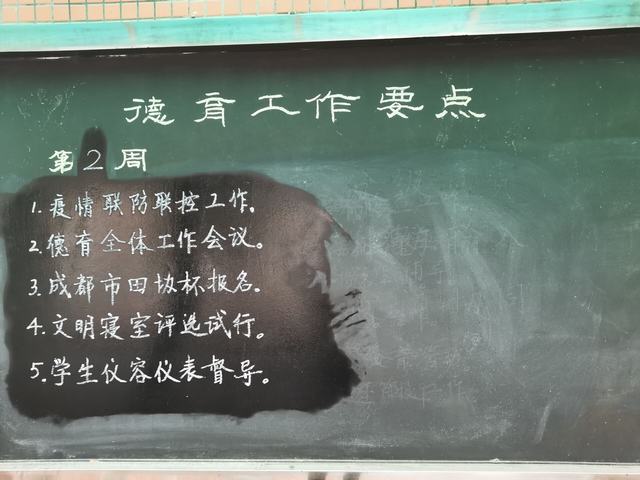 德育工作要点
第2周
1.疫情联防联控工作。
2.德育全体工作会议。
3.成都市田协杯报名。
4.文明寝室评选试行。
5.学生仪容仪表督导。